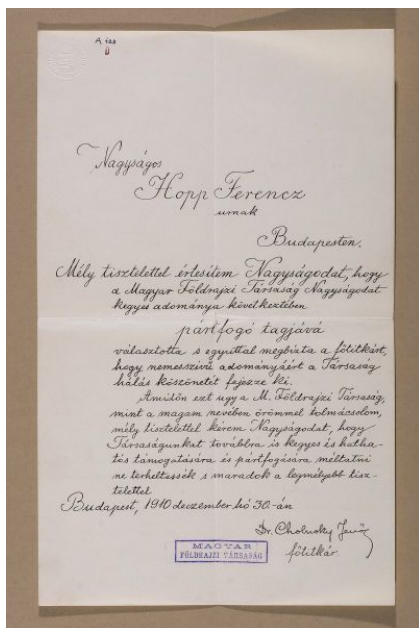 Nagyságos
Hopp Ferencz
urnak
Budapesten.
Mély tisztelettel értesítem Nagyságodat, hogy
a Magyar Földrajzi Társaság Nagyságodat
kegyes adománya következtében
pártfogó tagjává
választotta s egyuttal megbizta a főtitkárt,
hogy nemesszivü adományáért a Társaság
hálás köszönetét fejezze ki.
Amidőn ezt ugy a M. Földrajzi Társaság,
mint a magam nevében örömmel tolmácsolom,
mély tisztelettel kérem Nagyságodat, hogy
Társaságunkat továbbra is kegyes és hatha-
tós támogatására és pártfogására méltatni
ne terheltessék s maradok a legmélyebb tisz-
telettel
Budapest, 1910 deczember hó 30.-án
Dr. Cholnoky Jenő
főtitkár.
MAGYAR
FÖLDRAJZI TÁRSASÁG